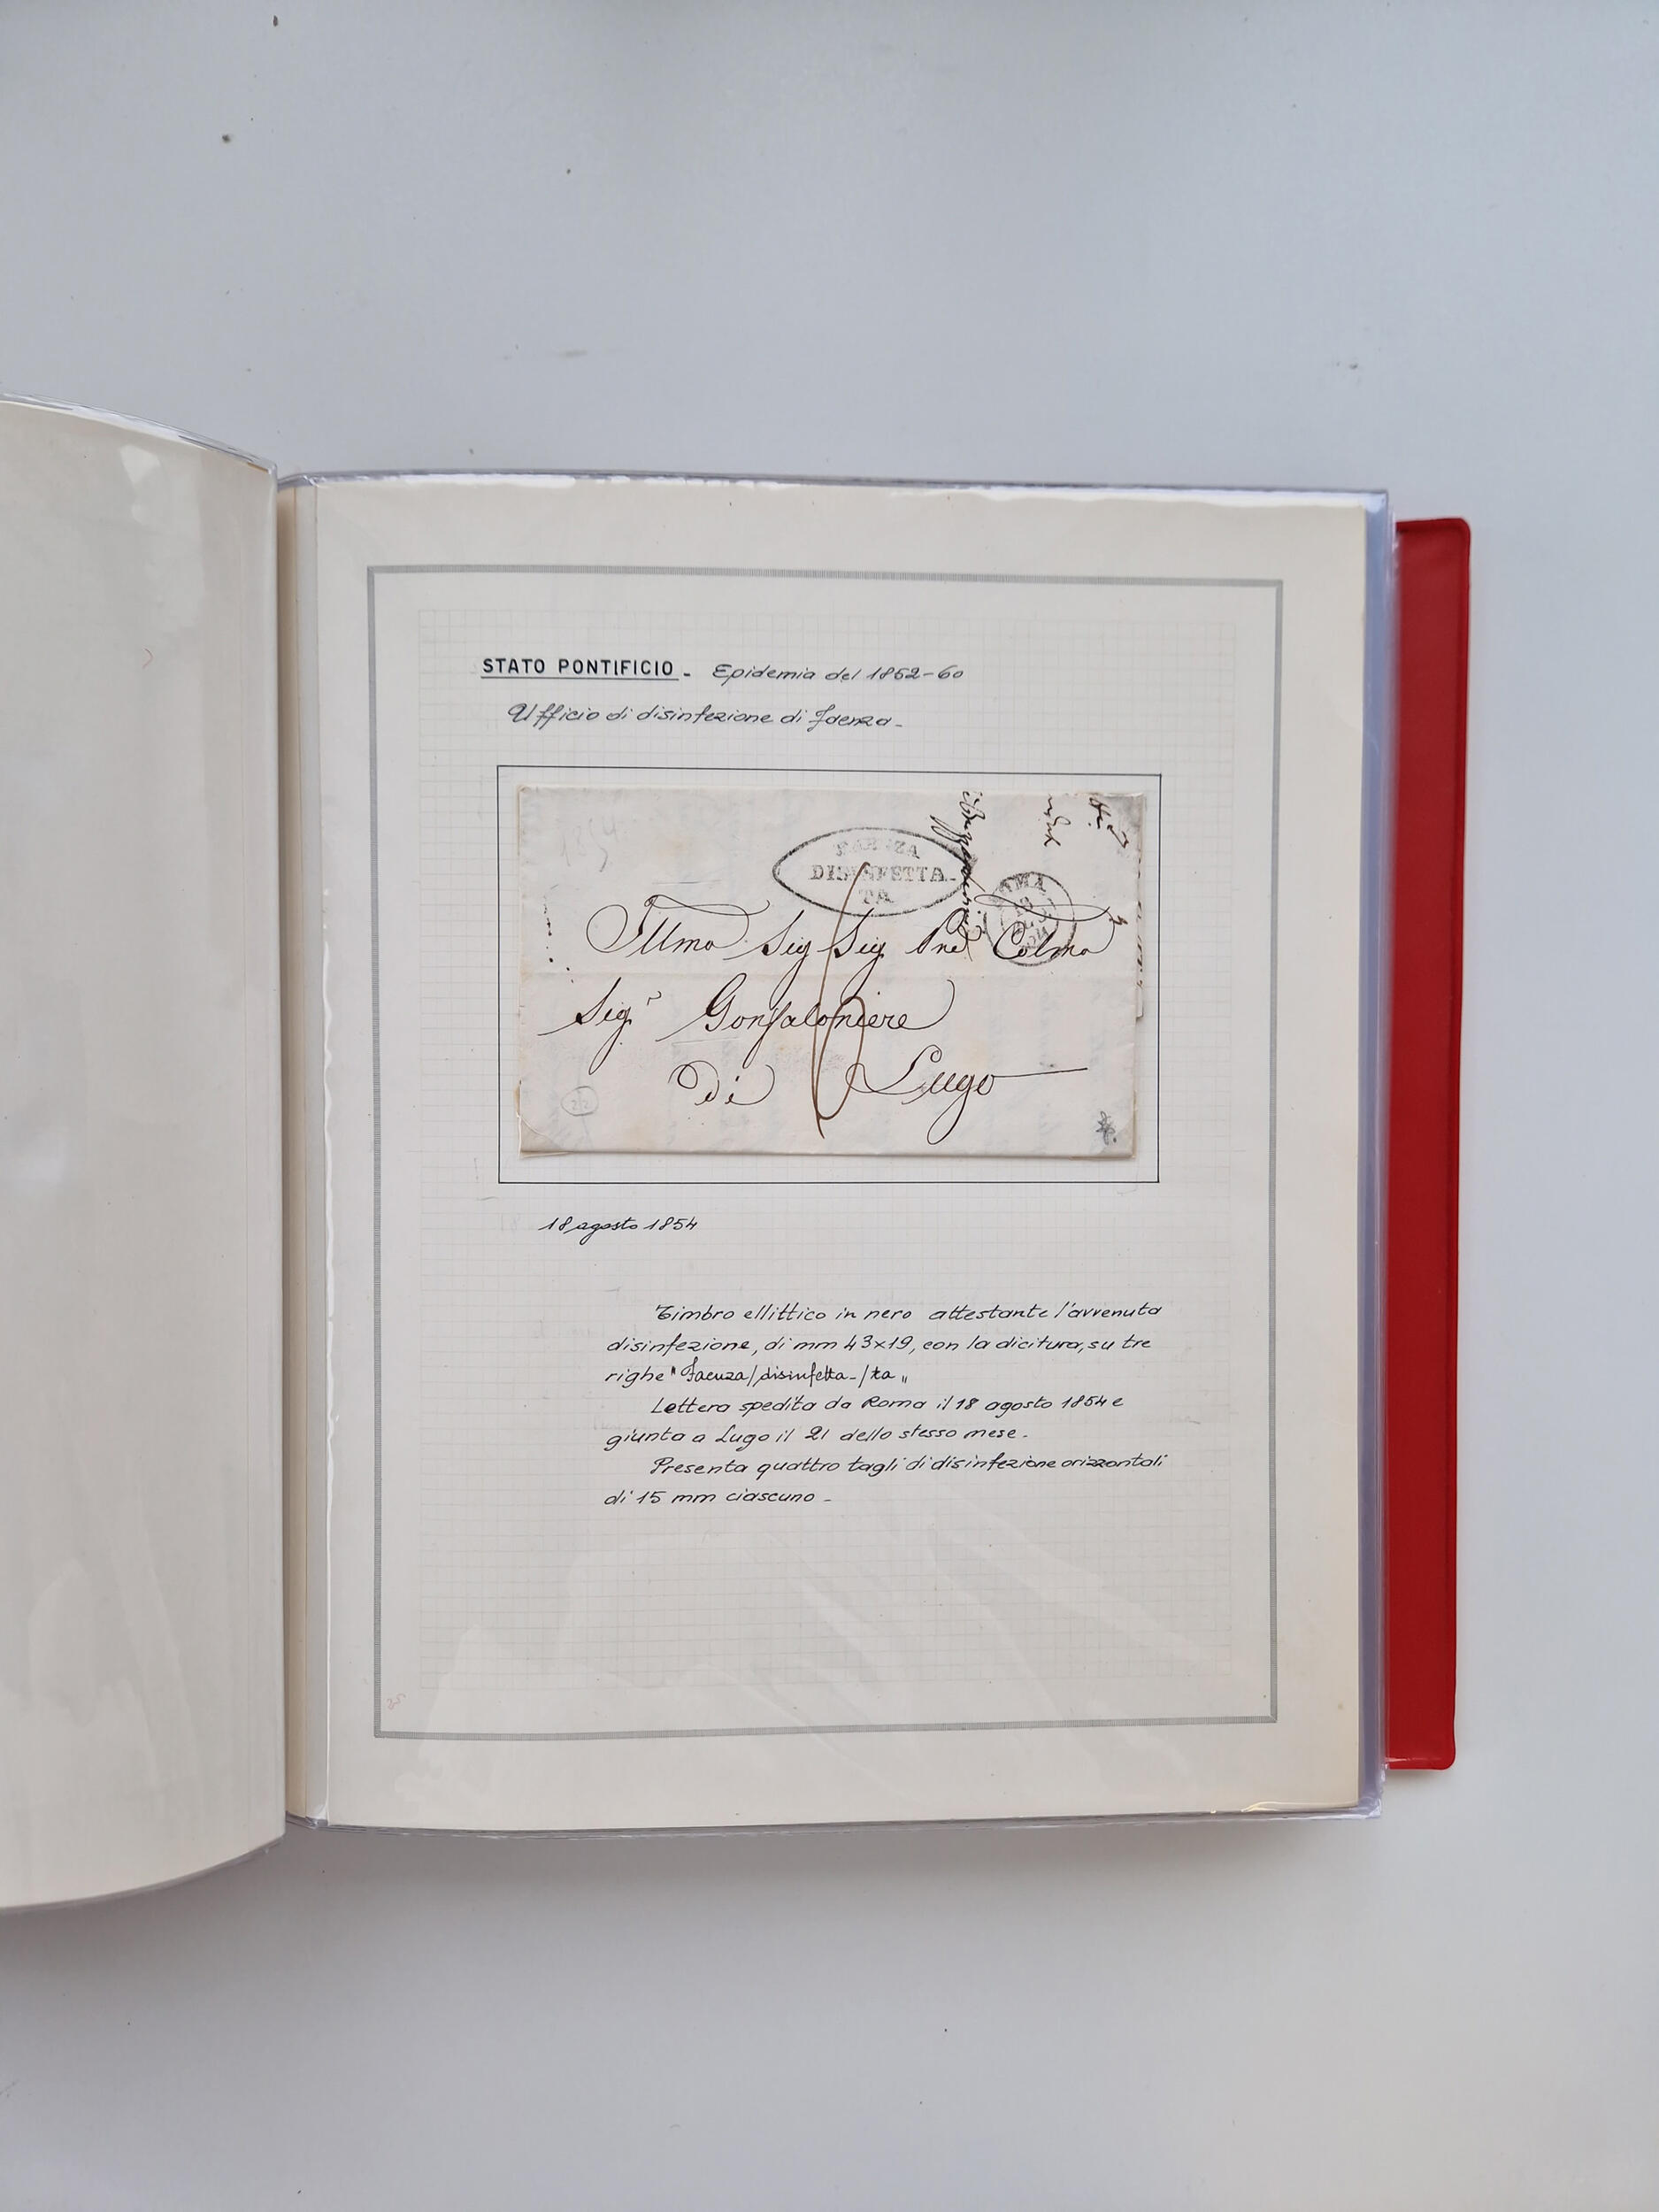 STATO PONTIFICIO - Epidemia del 1852-60
Ufficio di disinfezione di Faenza -
FAENZA
DISINFETTA-
TA
ROMA
Illmo Sig Sig Pne Colmo
Sigr Gonfaloniere
di Lugo
22
18 agosto 1854
Timbro ellittico in nero attestante l'avvenuta
disinfezione, di mm 43x19, con la dicitura, su tre
righe "Faenza/disinfetta-/ta"
Lettera spedita da Roma il 18 agosto 1854 e
giunta a Lugo il 21 dello stesso mese.
Presenta quattro tagli di disinfezione orizzontali
di 15 mm ciascuno -